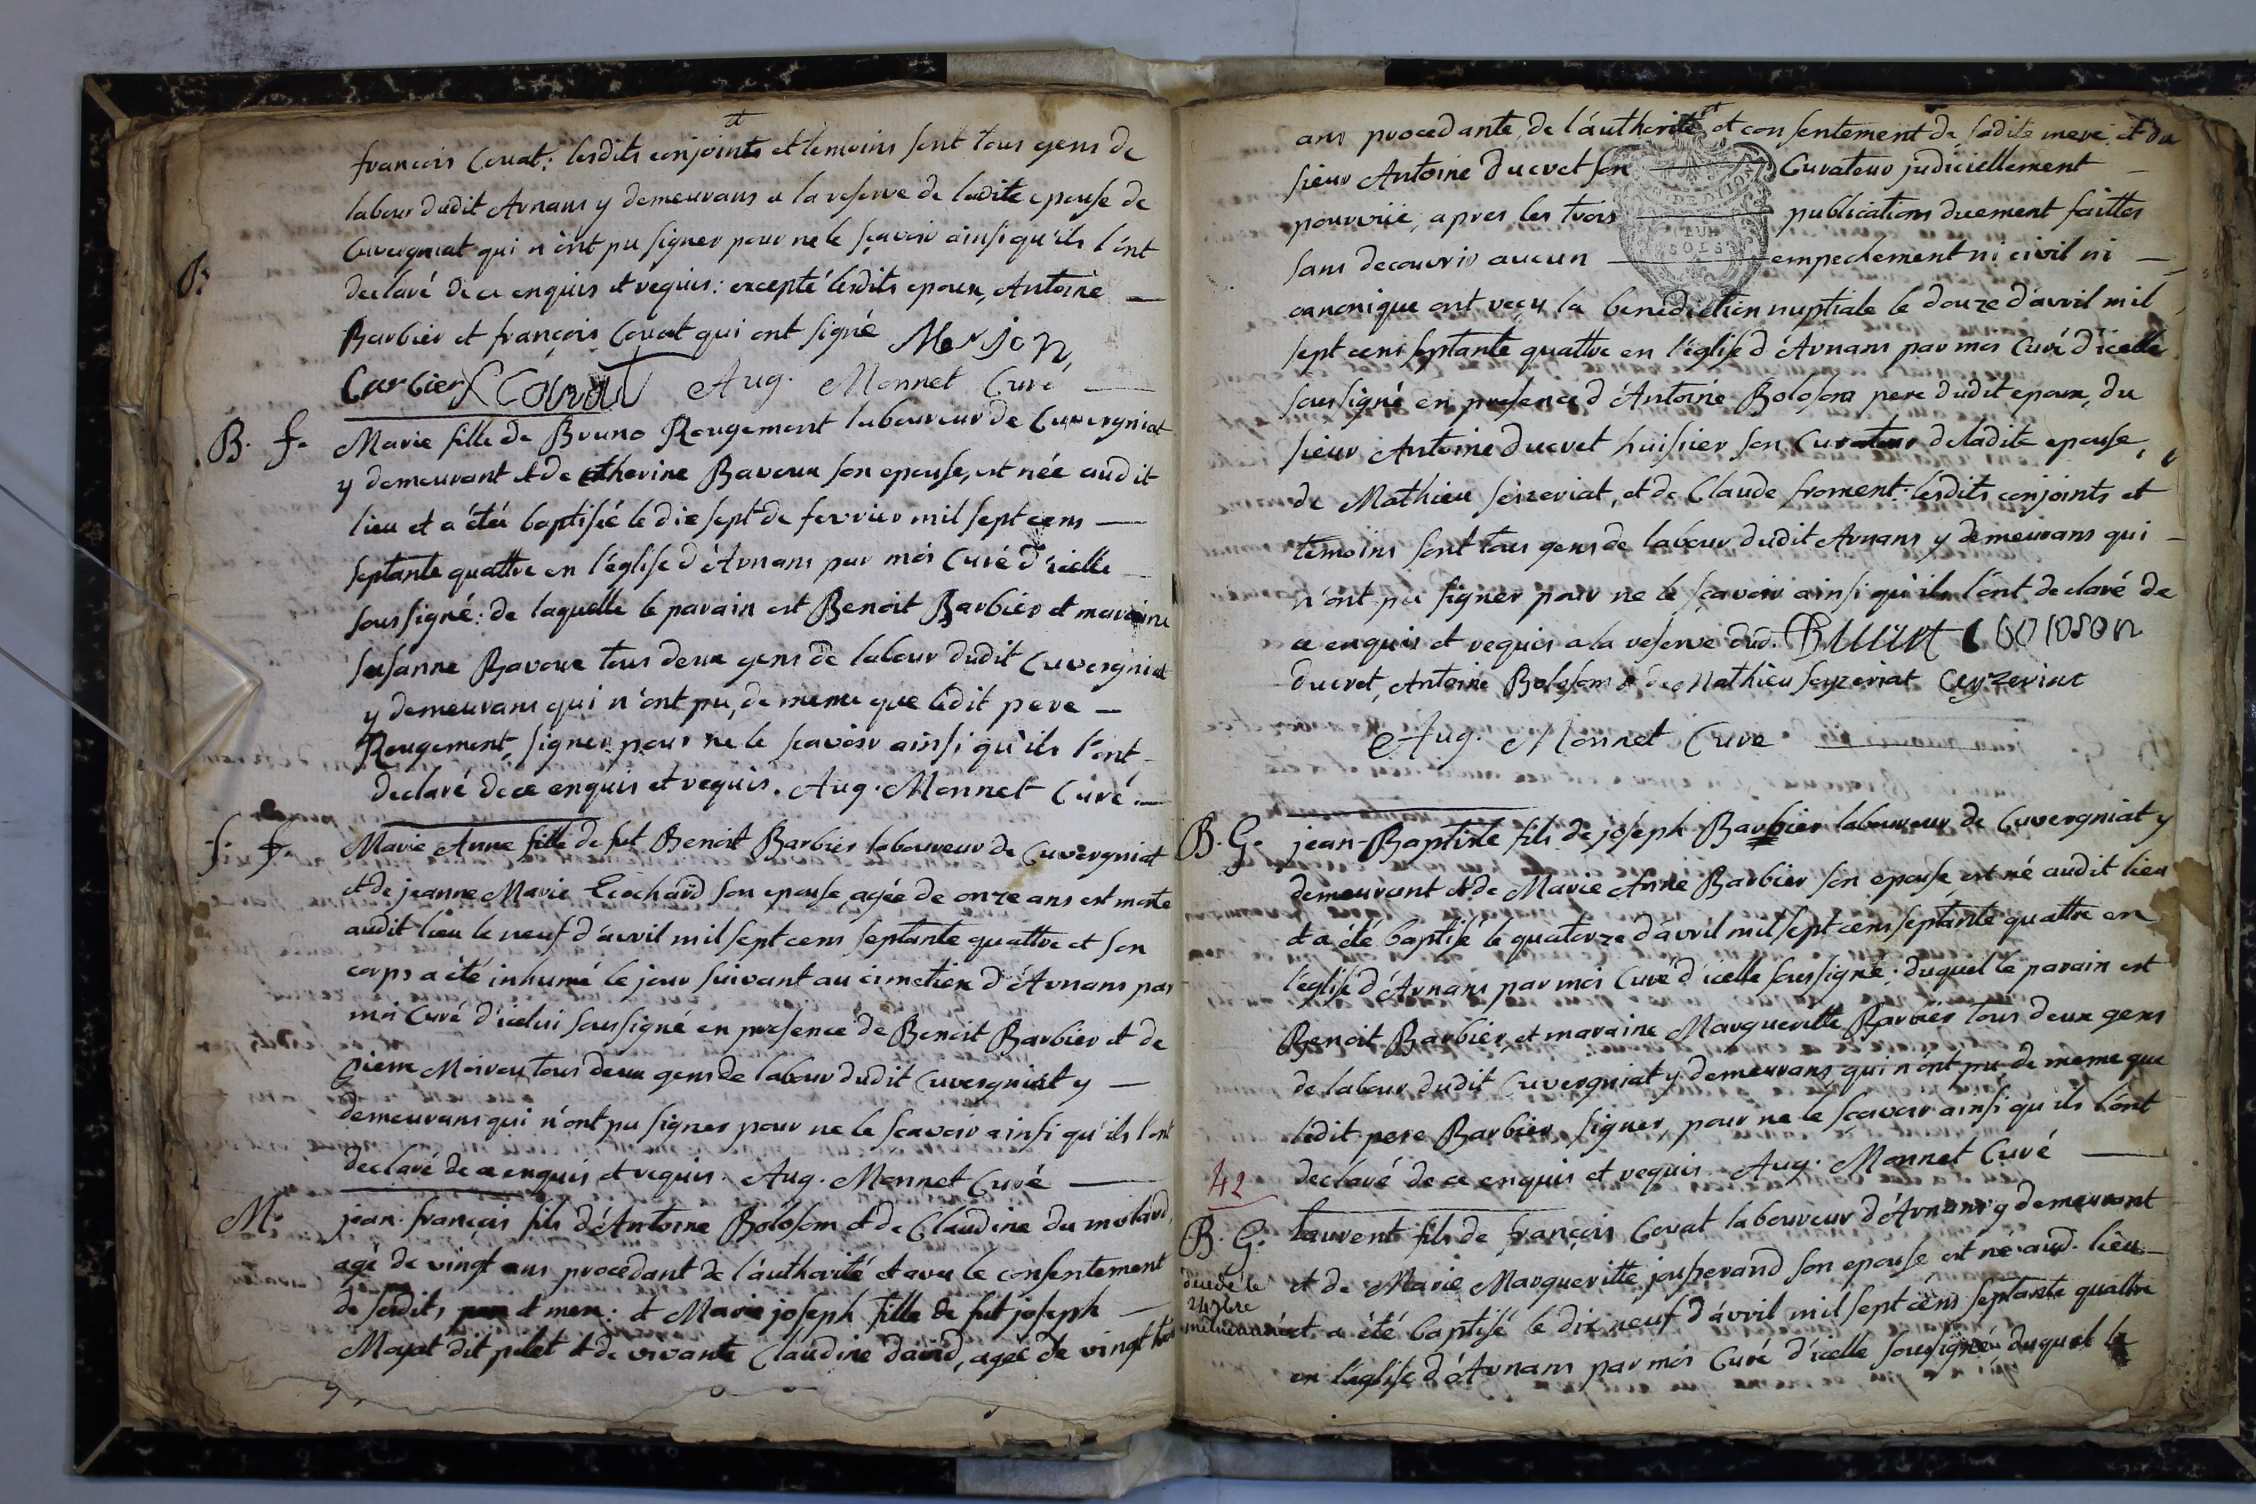 françois Covat: lesdits conjoints et temoins sont tous gens de
labour dudit Arnans y demeurans a la reserve de ladite epouse de
Cuvergniat qui n'ont pu signer pour ne le sçavoir ainsi qu'ils l'ont
declaré de ce enquis et requis: excepté lesdits epoux, Antoine
Barbier et françois Covat qui ont signé Merjon
barbier f Covat Aug. Monnet Curé
B. f.
Marie fille de Bruno Rougemont laboureur de Cuvergniat
y demeurant et de Catherine Bavoux son epouse, est née audit
lieu et a été baptisée le dix sept de fevrier mil sept cens
septante quattre en l'église d'Arnans par moi Curé d'icelle
soussigné: de laquelle le parain est Benoit Barbier et maraine
susanne Bavoux tous deux gens de labour dudit Cuvergniat
y demeurans qui n'ont pu, de meme que ledit pere
Rougemont, signer pour ne le sçavoir ainsi qu'ils l'ont
declaré de ce enquis et requis. Aug. Monnet Curé
f. f.
Marie Anne fille de fut Benoit Barbier laboureur de Cuvergniat
et de jeanne Marie Ecochard son epouse, agée de onze ans est morte
audit lieu le neuf d'avril mil sept cens septante quattre et son
corps a été inhumé le jour suivant au cimetiere d'Arnans par
moi Curé d'icelui soussigné en presence de Benoit Barbier et de
pierre Moiroux tous deux gens de labour dudit Cuvergniat y
demeurans qui n'ont pu signer pour ne le sçavoir ainsi qu'ils l'ont
declaré de ce enquis et requis. Aug. Monnet Curé
M.
jean-françois fils d'Antoine Boloson et de Claudine du molard,
agé de vingt ans procedant de l'authorité et avec le consentement
de sesdits pere et mere: et Marie joseph fille de fut joseph
Moyat dit pilet et de vivante Claudine david, agée de vingt trois
ans procedante, de l'authorité et consentement de sadite mere, et du
sieur Antoine Ducret son Curateur judiciellement
pourvüe, apres les trois publications duement faittes
sans decouvrir aucun empechement ni civil ni
canonique ont reçu la benediction nuptiale le douze d'avril mil
sept cens septante quattre en l'église d'Arnans par moi Curé d'icelle
soussigné en presence d'Antoine Boloson pere dudit epoux, du
sieur Antoine Ducret huissier son Curateur de ladite epouse,
de Mathieu seizeriat, et de Claude froment: lesdits conjoints et
temoins sont tous gens de labour dudit Arnans y demeurans qui
n'ont pu signer pour ne le sçavoir ainsi qu'ils l'ont declaré de
ce enquis et requis a la reserve dud. Ducret boloson
ducret, Antoine Boloson et de Mathieu seyzeriat Ceyzeriat
Aug. Monnet Curé
B. G.
jean-Baptiste fils de joseph Barbier laboureur de Cuvergniat y
demeurant et de Marie Anne Barbier son epouse est né audit lieu
et a été baptisé le quatorze d'avril mil sept cens septante quattre en
l'église d'Arnans par moi Curé d'icelle soussigné: duquel le parain est
Benoit Barbier, et maraine Margueritte Barbier tous deux gens
de labour dudit Cuvergniat y demeurans qui n'ont pu, de meme que
ledit pere Barbier, signer, pour ne le sçavoir ainsi qu'ils l'ont
declaré de ce enquis et requis. Aug. Monnet Curé
42
B. G.
Laurent fils de françois Covat laboureur d'Arnans y demeurant
et de Marie Margueritte jousserand son epouse est né aud. lieu
et a été baptisé le dix neuf d'avril mil sept cens septante quattre
en l'église d'Arnans par moi Curé d'icelle soussigné: duquel le